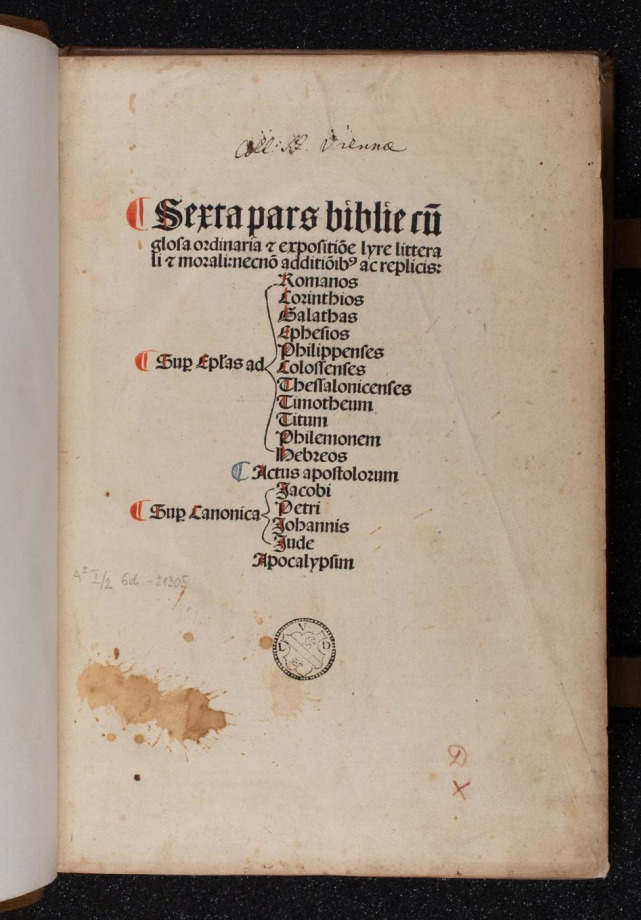 Coll: S. J. Viennæ
⸿ Sexta pars biblie cū
glosa ordinaria ⁊ expositiōe lyre littera
li ⁊ morali: necnō additiōibꝰ ac replicis:
Romanos
Corinthios
Galathas
Ephesios
Philippenses
⸿ Suꝑ Ep̄las ad Colossenses
Thessalonicenses
Timotheum
Titum
Philemonem
Hebreos
⸿ Actus apostolorum
Jacobi
Petri
⸿ Suꝑ Canonica
Johannis
Jude
Apocalypsim
I/2 6d -21305
V
L D
D
X